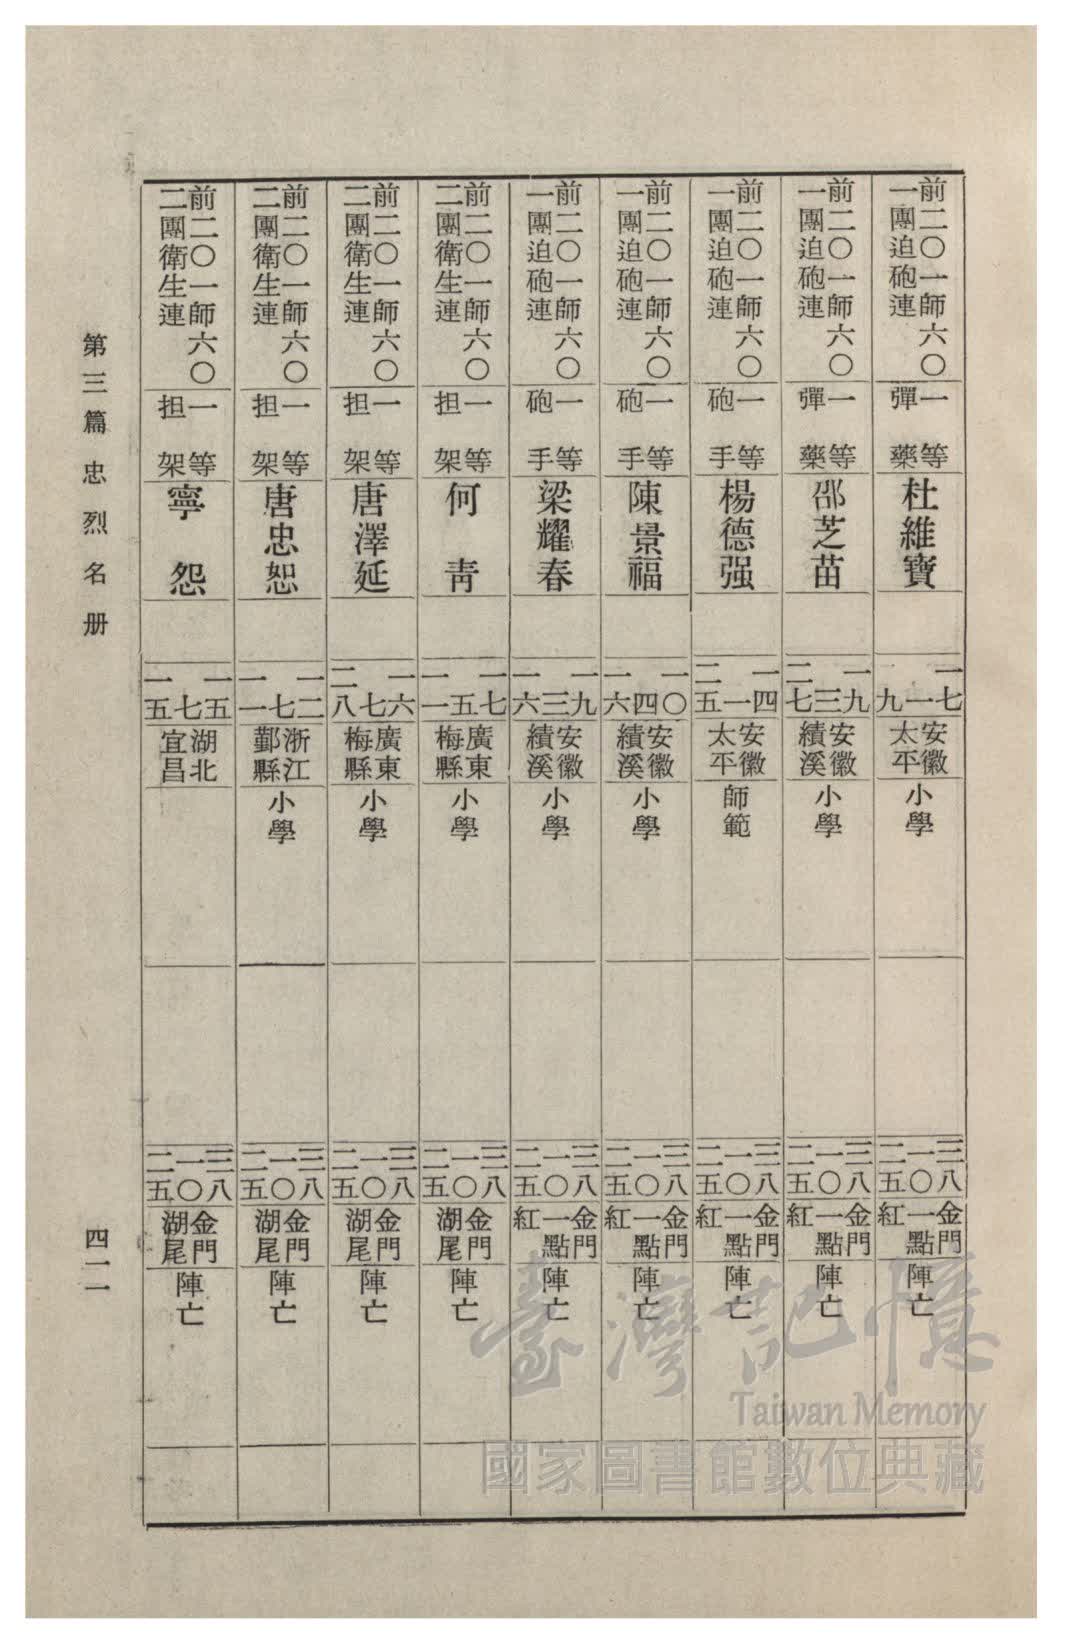 前二〇一師六〇
一團迫砲連
一等
彈藥
杜維寶
一七
一
九
安徽
太平
小學
三八
一〇
二五
金門
一點
紅
陣亡
前二〇一師六〇
一團迫砲連
一等
彈藥
邵芝苗
一九
三
二七
安徽
績溪
小學
三八
一〇
二五
金門
一點
紅
陣亡
前二〇一師六〇
一團迫砲連
一等
砲手
楊德强
一四
一
二五
安徽
太平
師範
三八
一〇
二五
金門
一點
紅
陣亡
前二〇一師六〇
一團迫砲連
一等
砲手
陳景福
一〇
四
一六
安徽
績溪
小學
三八
一〇
二五
金門
一點
紅
陣亡
前二〇一師六〇
一團迫砲連
一等
砲手
梁耀春
一九
三
一六
安徽
績溪
小學
三八
一〇
二五
金門
一點
紅
陣亡
前二〇一師六〇
二團衛生連
一等
担架
何青
一七
五
一一
廣東
梅縣
小學
三八
一〇
二五
金門
湖尾
陣亡
前二〇一師六〇
二團衛生連
一等
担架
唐澤延
一六
七
二八
廣東
梅縣
小學
三八
一〇
二五
金門
湖尾
陣亡
前二〇一師六〇
二團衛生連
一等
担架
唐忠恕
一二
七
一一
浙江
鄞縣
小學
三八
一〇
二五
金門
湖尾
陣亡
前二〇一師六〇
二團衛生連
一等
担架
寧怨
一五
七
一五
湖北
宜昌
三八
一〇
二五
金門
湖尾
陣亡
第三篇忠烈名册
四一一
臺灣記憶
Taiwan Memory
國家圖書館數位典藏